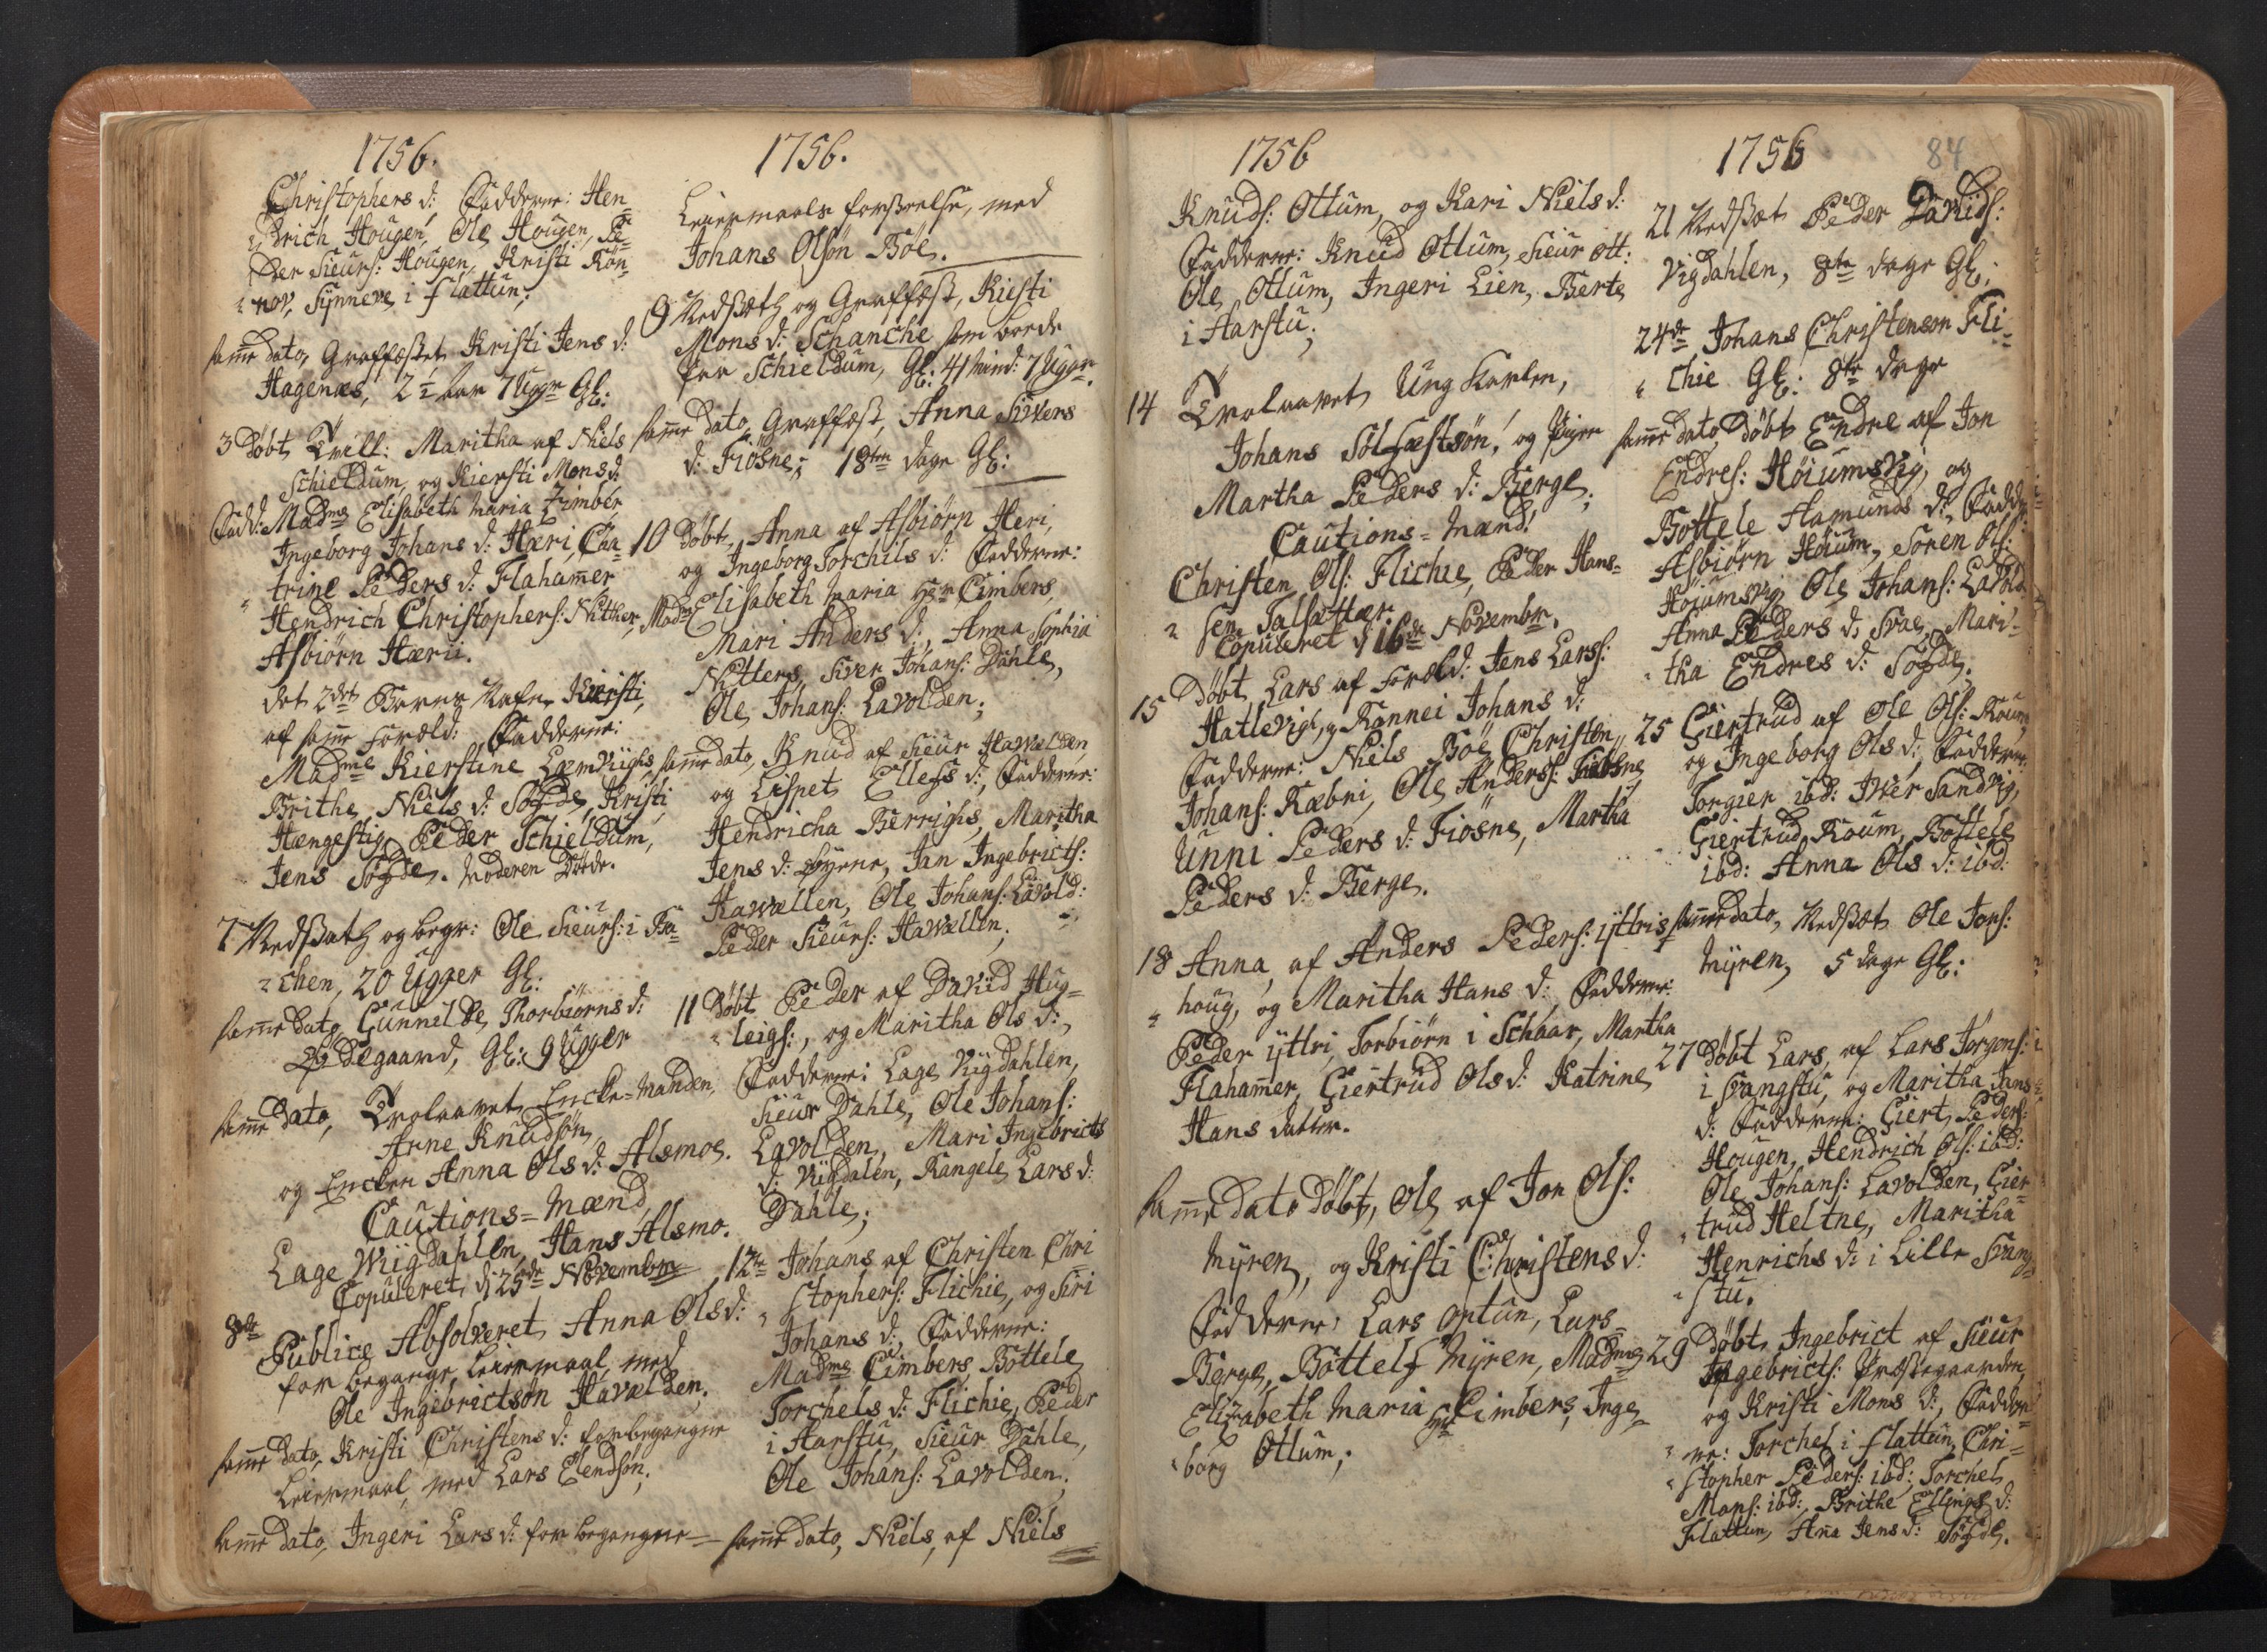 1756.
Christophers d: Fadderne: Hen=
drich Hougen, Ole Hougen, Pe=
der Sieurs: Hougen, Kristi Røn=
nov, Synneve i flattun;
samme dato, Graffæstet Kristi Jens d:
Hagenæs, 2 1/2 aar 7 Uger Gl:
3 Døbt Tvill: Maritha af Niels
Schieldum, og Kiersti Mons d:
Fadd: Madme Elisabeth Maria Zimber,
Ingeborg Johans d: Hæri, Caa=
trine Peders d: Flahammer
Hendrich Christophers: Nitther,
Asbiørn Hærii.
det 2det Barns Nafn Kiersti,
af samme Foræld: Fadderne:
Madme Kierstine Lemviighs,
Brithe Niels d: Søgde, Kristi
Hængestig, Peder Schieldum,
Jens Søgde. Moderen Døde.
7 Nedsath og begr: Ole Sieurs: i Ba=
chen, 20 Ugger Gl:
samme Dato Gunnilde Thorbiørns d:
Ødegaard, Gl: 9 Ugger
samme Dato, Trolovet Encke=Manden,
Arne Knudsøn,
og Encken Anna Ols d: Alsmos.
Cautions=Mænd
Lage Wiigdahlen, Hans Alsmo.
Copuleret, d 25de Novembr
8de Publice Absolveret Anna Ols d:
for begange Leiermaal, med
Ole Ingebrictsøn Havælden;
samme dato, Kristi Christens d: for begangne
Leiermaal, med Lars Elendsøn;
samme dato, Ingeri Lars d: for begangne
1756.
Leiermaals forseelse, med
Johans Olsøn Bøe.
9 Nedsath og Graffæst, Kiesti
Mons d: Schanche som boede
paa Schieldum, Gl: 41 Mind: 7 Ugger.
samme dato, Graffæst, Anna Sivers
d: Fiøsne; 18ten dage Gl:
10 Døbt, Anna af Asbiørn Heri,
og Ingeborg Torchils d: Fadderne:
Madme Elisabeth Maria Hr Cimbers,
Mari Anders d:, Anna Sophia
Nitters, Siver Johans: Dahle,
Ole Johans: Lavolden;
samme dato, Knud af Sieur Hawælden,
og Lispet Ellefs d:, Fadderne:
Hendricha Berrighs, Maritha
Jens d: Øyene, Jan Ingebricts:
Hawællen, Ole Johans: Lavold:
Peder Sieurs: Hawællen;
11 Døbt Peder af David Hug=
leigs:, og Maritha Ols d:,
Fadderne: Lage Viigdahlen,
Sieur Dahle, Ole Johans:
Lavolden, Mari Ingebricts
d: Viigdalen, Rangele Lars d:
Dahle;
12te Johans af Christen Chri
stophers: Flichie, og Siri
Johans d:, Fadderne:
Madme Cimbers, Bottele
Torchels d: Flichie, Peder
i Aarstu, Sieur Dahle,
Ole Johans: Lavolden;
samme dato, Niels, af Niels
1756
Knuds: Ottum, og Kari Niels d:
Fadderne: Knud Ottum, Sieur Ott:
Ole Ottum, Ingeri Lien, Berte
i Aarstu;
14 Trolovet Ung Karlen,
Johans Solfæstsøn, og Pigen
Martha Peders d: Berge;
Cautions=Mænd!
Christen Ols: Flichie, Peder Hans=
sen Talsættær.
Copuleret d 16de Novembr.
15 Døbt Lars af Foræld: Jens Lars:
Hatlevigh, og Rannei Johans d:
Fadderne: Niels Bøe, Christen
Johans: Ræbni, Ole Anders: Fiøsne
Unni Peders d: Fiösne, Martha
Peders d: Berge.
18 Anna, af Anders Peders: ijttris
houg, og Maritha Hans d: Fadderne:
Peder ijttri, Torbiørn i Schaar, Martha
Flahammer, Giertrud Ols d: Katrine
Hans datter.
samme dato Døbt, Ole af Jon Ols:
Myren, og Kristi Christens d:
Fadderne: Lars optun, Lars
Berge, Bottelf Myren, Madme
Elizabeth Maria Hr Cimbers, Inge=
borg Ottum;
1756
84
21 Nedsæt Peder Davids:
Vigdahlen, 8te dage Gl:
24de Johans Christensøn Fli=
chie Gl: 8te dage
samme dato, Døbt Endre af Jon
Endres: Høiumsvig, og
Bottele Aamunds d:, Fadde
Asbiørn Høium, Søren Ols:
Høiumsvig, Ole Johans: Lavold
Anna Peders d: Svae, Mari=
tha Endres d: Søgde.
25 Giertrud af Ole Ols: Roum
og Ingeborg Ols d:, Fadderne:
Torgier ibd: Iver Sandvig,
Giertrud Roum, Bottele
ibd: Anna Ols d: ibd:
samme dato, Nedsæt Ole Jons:
Myren, 5 dage Gl:
27 Døbt Lars, af Lars Jörgens:
i Svangstu, og Maritha Jans
d: Fadderne: Giert Peders:
Hougen, Hendrich Ols: ibd:
Ole Johans: Lavolden, Gier=
trud Heltne, Maritha
Henrichs d: i Lille Svang
stu.
29 Døbt, Ingebrict af Sieur
Ingebricts: Præstegaarden,
og Kristi Mons d:, Fadder=
ne: Torchel i flattun, Chri=
stopher Peders: ibd; Torchel
Mons: ibd:, Brithe Ellings d:
Flattun, Anna Jens d: Søgde.